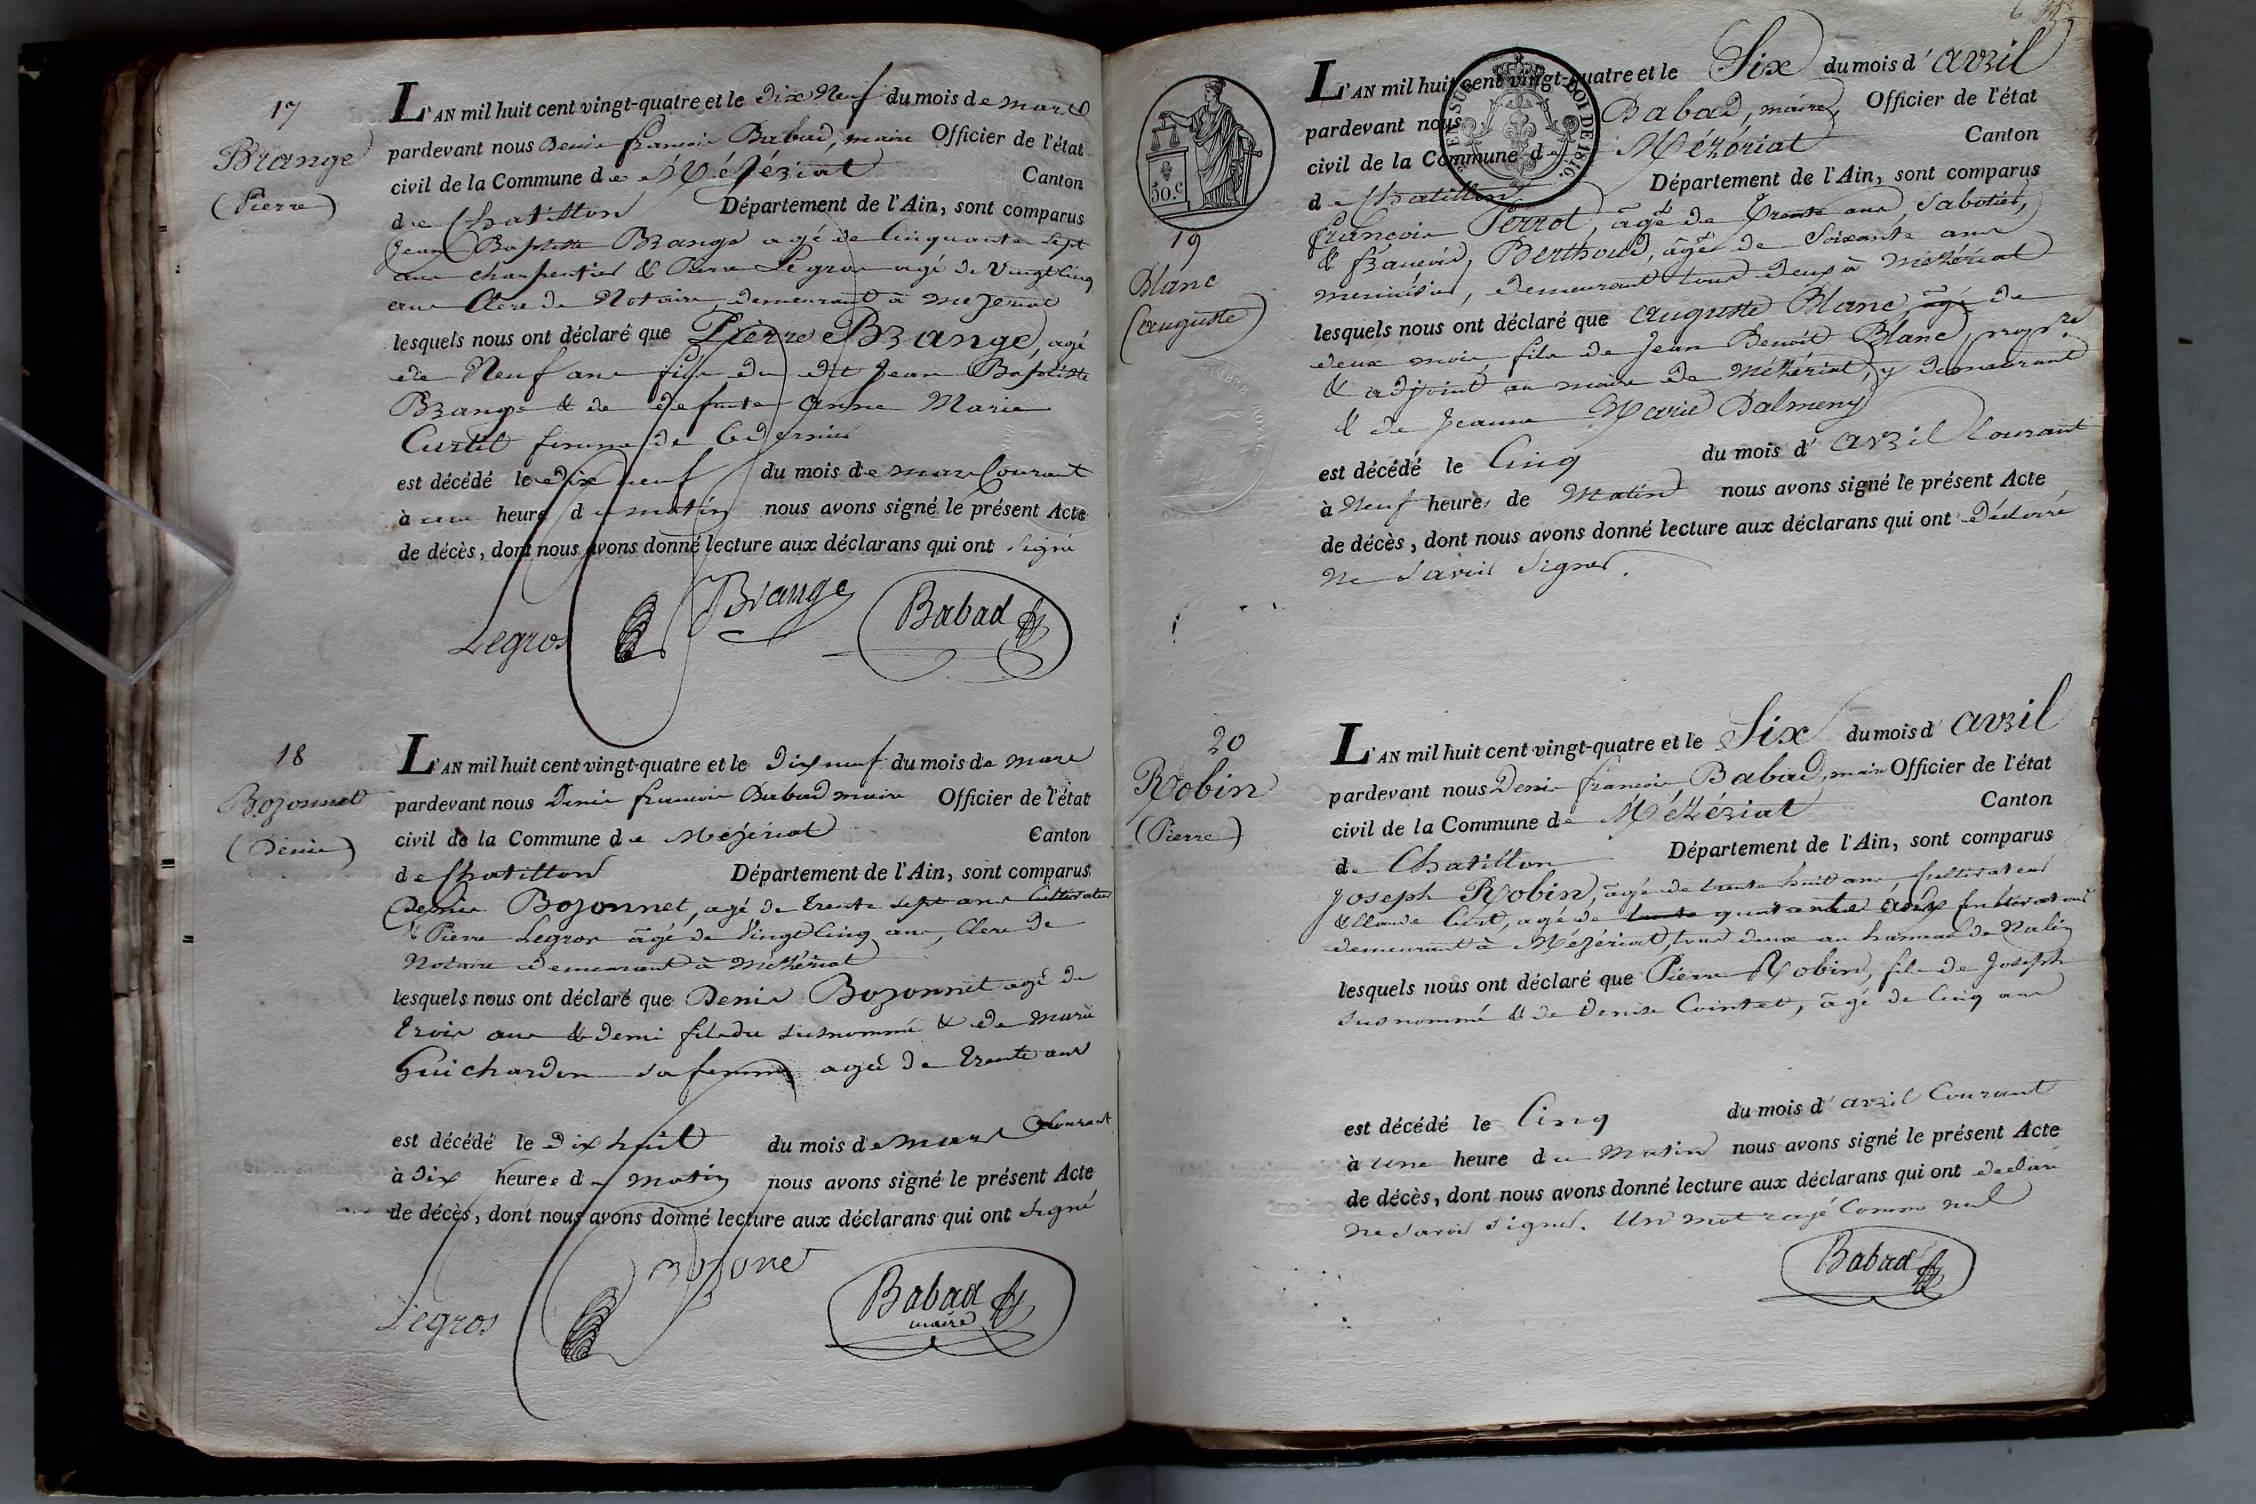 17
Brange
(Pierre)
L'AN mil huit cent vingt-quatre et le dix Neuf du mois de mars
pardevant nous Denis françois Babad, maire Officier de l'état
civil de la Commune de Mézériat Canton
de Chatillon Département de l'Ain, sont comparus
Jean Baptiste Brange agé de Cinquante Sept
ans charpentier & Pierre Legros agé de Vingt Cinq
ans Clerc de Notaire, demeurant à mezeriat
lesquels nous ont déclaré que Pierre Brange, agé
de Neuf ans fils du dit Jean Baptiste
Brange & de defunte Anne Marie
Curtil femme de Ce dernier
est décédé le dix neuf du mois de mars Courant
à une heure du matin nous avons signé le présent Acte
de décès, dont nous avons donné lecture aux déclarans qui ont signé
Legros Brange Babad
18
Bozonnet
(Denis)
L'AN mil huit cent vingt-quatre et le Dix neuf du mois de mars
pardevant nous Denis françois Babad maire Officier de l'état
civil de la Commune de Mézériat Canton
de Chatillon Département de l'Ain, sont comparus
Denis Bozonnet, agé de trente sept ans Cultivateur
& Pierre Legros âgé de Vingt Cinq ans, Clerc de
Notaire demeurant à Mézériat
lesquels nous ont déclaré que Denis Bozonnet agé de
trois ans & demi fils du susnommé & de Marie
Guichardon sa femme agée de trente ans
est décédé le dix huit du mois de mars Courant
à dix heures du matin nous avons signé le présent Acte
de décès, dont nous avons donné lecture aux déclarans qui ont signé
Legros Bozone Babad
maire
50.c
19
Blanc
(auguste)
L'AN mil huit cent vingt-quatre et le Six du mois d'avril
pardevant nous Babad, maire, Officier de l'état
civil de la Commune de Mézériat Canton
de Chatillon Département de l'Ain, sont comparus
françois Perrot, âgé de trente ans, Sabotier,
& françois Berthoud, âgé de Soixante ans
menuisier, demeurant tous deux à Mézériat
lesquels nous ont déclaré que auguste Blanc, âgé de
deux mois, fils de Jean Benoit Blanc, prop.re
& adjoint au maire de Mézériat, y demeurant
& de Jeanne Marie Dalmeny
est décédé le Cinq du mois d'avril Courant
à Neuf heures de Matin nous avons signé le présent Acte
de décès, dont nous avons donné lecture aux déclarans qui ont déclaré
ne Savoir Signer.
20
Robin
(Pierre)
L'AN mil huit cent vingt-quatre et le Six du mois d'avril
pardevant nous Denis françois Babad, maire Officier de l'état
civil de la Commune de Mézériat Canton
de Chatillon Département de l'Ain, sont comparus
Joseph Robin, âgé de trente huit ans, Cultivateur
& Claude agé de trente quarante Cultivateur
demeurant à Mézériat, tous deux au hameau de
lesquels nous ont déclaré que Pierre Robin, fils de Joseph
susnommé & de Denise Cointet, âgé de Cinq ans
est décédé le Cinq du mois d'avril Courant
à une heure du Matin nous avons signé le présent Acte
de décès, dont nous avons donné lecture aux déclarans qui ont déclaré
ne Savoir Signer. Un mot rayé Comme nul
Babad